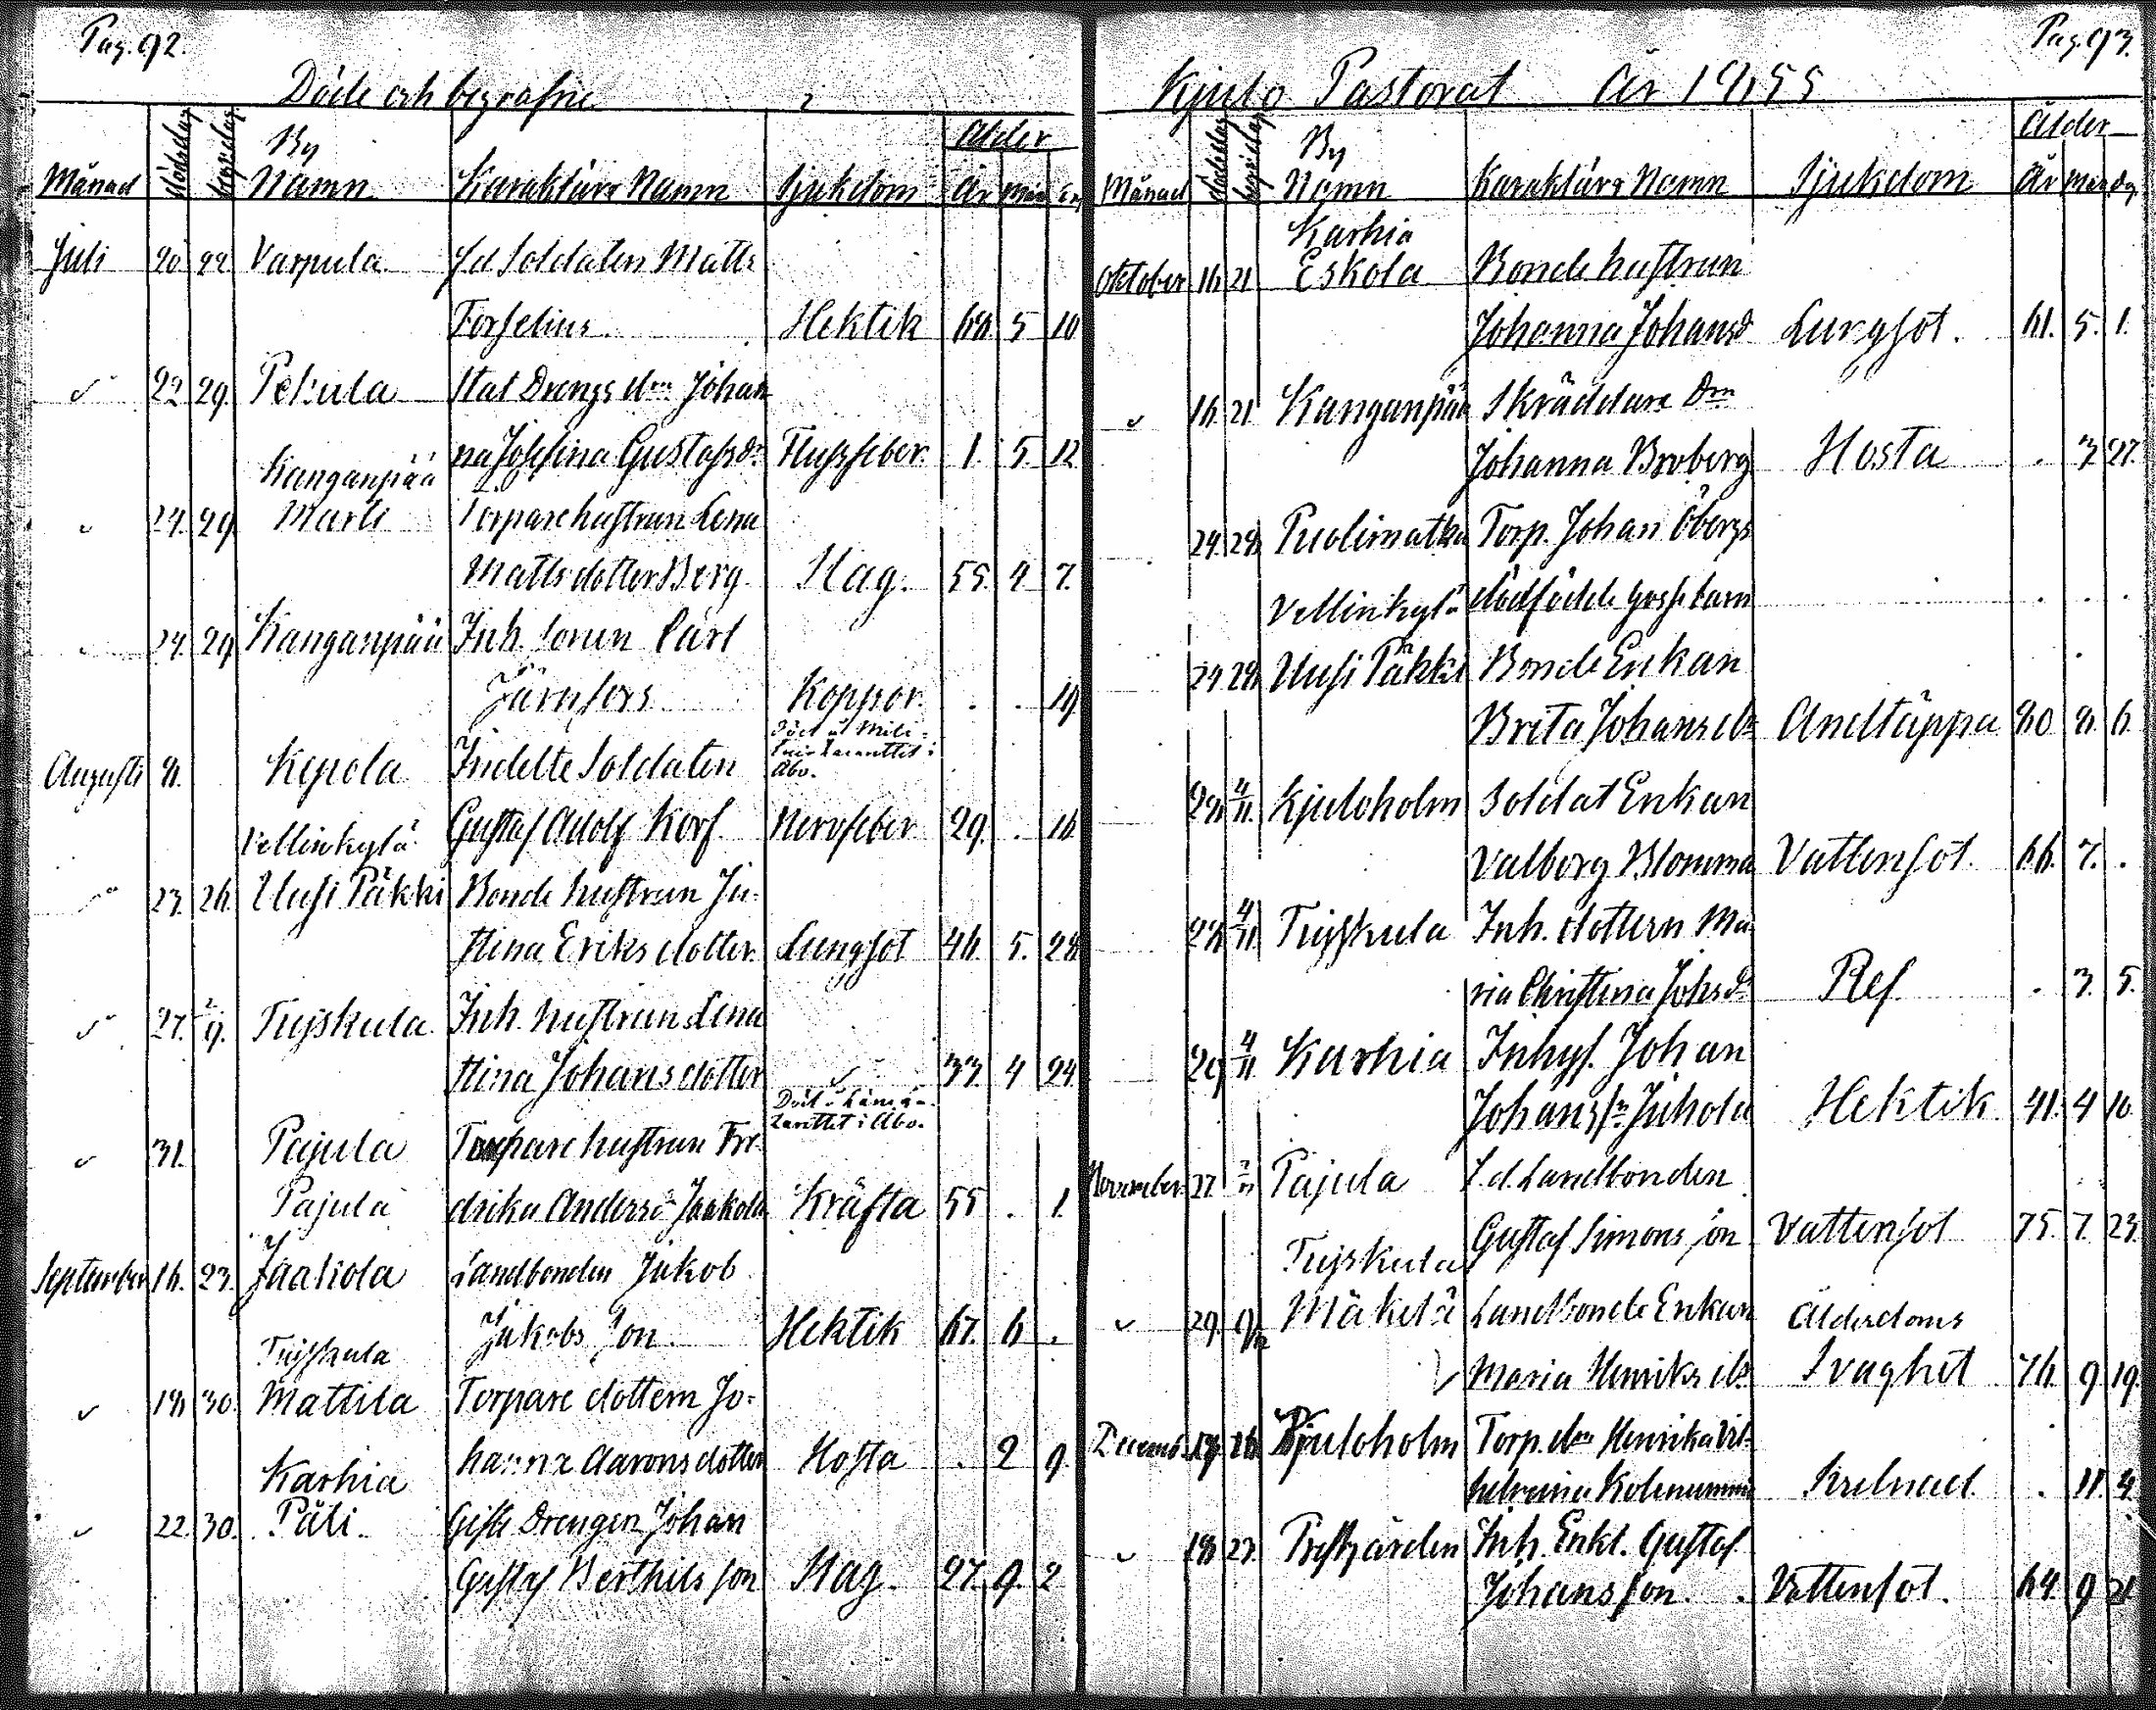 Pag. 92.
Döde och begrafne
Månad dödsdag begr:dag By Namn Karaktärs Namn Sjukdom Ålder År Mån Dg
Juli 20 22 Varpula fd Soldaten Matts
Forselius Hektik 68. 5 10
22 29. Pekula Stat Drengs dr Johan
na Josefina Gustafsdr Flussfeber 1. 5. 12
Kanganpää
24. 29 Marti Torpare hustrun Lena
Matts dotter Berg Slag. 55. 4. 7.
24. 29 Kanganpää Inh. sonen Carl
Järnfors Koppor. . . 19.
Död å Mili-
tair Lazarettet i
Åbo.
Augusti 8. Kepola Indelte Soldaten
Gustaf Adolf Korf Nervfeber 29. . 16
Vellinkylä
23. 26. Uusi Päkki Bonde hustrun Ju-
stina Eriks dotter Lungsot 46. 5. 28
27. 2/9. Tujskula Inh. hustrun Lena
Stina Johans dotter 33. 4 24.
Död å Läns-
Lazarettet i Åbo.
31. Pajula Torpare hustrun Fre-
Pajula drika Andersdr Jaakola Kräfta 55 . 1.
September 16. 23. Jaakola Landbonden Jakob
Jakobs son Hektik 67. 6 .
Tujskula
18 30. Mattila Torpare dottern Jo-
hanna Aarons dotter Hosta . 2 9.
Karhia
22. 30. Päli Gifte Drengen Johan
Gustaf Berthils son Slag. 27. 9. 2
Pag. 93.
Kjulo Pastorat År 1855
Månad dödsdag begr:dag By Namn Karaktärs Namn Sjukdom Ålder År Mån Dg
Karhia
Oktober 16 21 Eskola Bonde hustrun
Johanna Johansd Lungsot. 61. 5. 1.
16. 21 Kanganpää Skräddare dr
Johanna Broberg Hosta . 3 27.
24. 28 Puolimatka Torp. Johan Öbergs
Vellinkylä dödfödde gosse barn . . .
24 28 Uusi Päkki Bonde Enkan
Brita Johans dr Andtäppa 80 8. 6.
28 4/11. Kjuloholm Soldat Enkan
Valborg Blomma Vattensot. 66. 7. .
28 4/11 Tujskula Inh. dottern Ma
ria Christina Johsdr Ref . 3. 5.
29 4/11 Karhia Inhys. Johan
Johansson Juhola Hektik 41. 4 10
November 27. Pajula f.d. Landbonden
Gustaf Simons son Vattensot 75. 7. 23.
Tujskula
29. 9/12 Mäkelä Landbonde Enkan Ålderdoms
Maria Henriks dr Svaghet 76. 9. 19.
Decemb. 26 Kjuloholm Torp. dr Henrika Vil-
helmina Kolinummi Skelnad . 11. 4.
18 23. Prestgården Inh. Enkl. Gustaf
Johansson. Vattensot. 64. 9 21